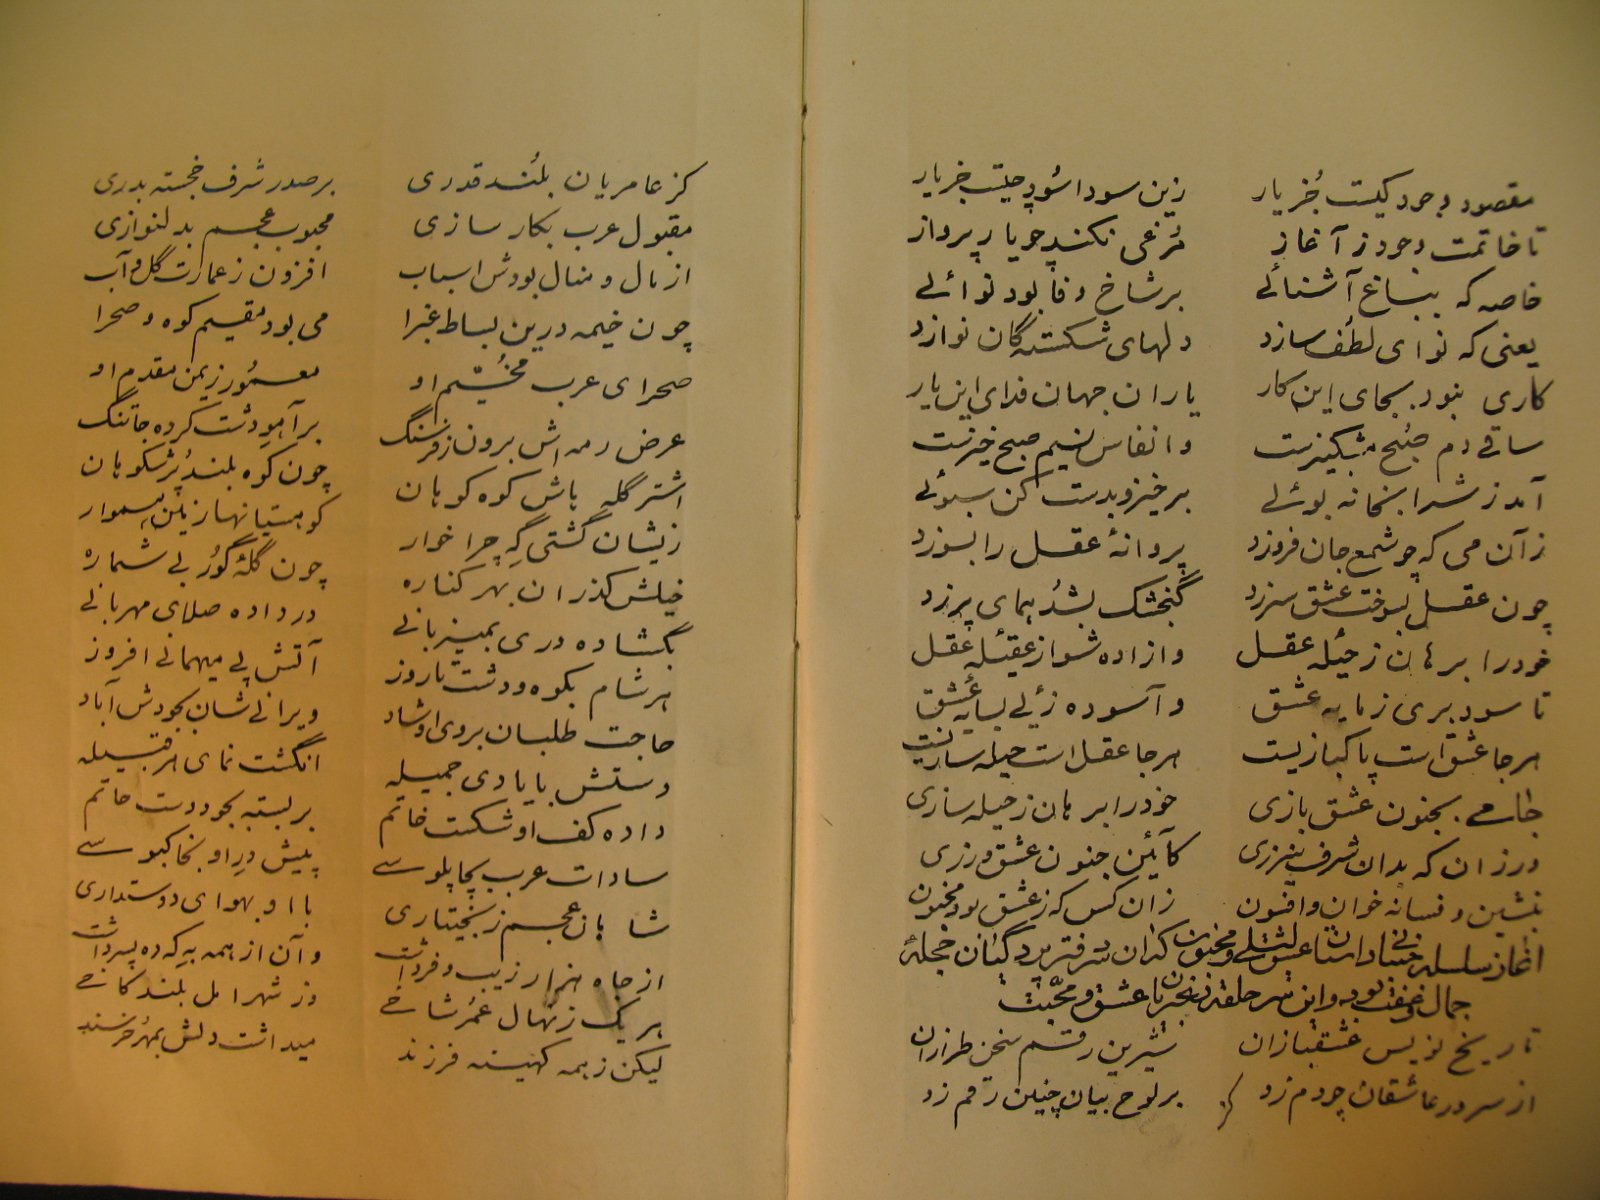 مقصود وجود کیست جُز یار زین سودا سُود چیست جز یار
تا خاتمت وجود ز آغاز مُرغی نکند چو یار پرواز
خاصه که بباغ آشنائی بر شاخ وفا بود نوائی
یعنی که نوای لطف سازد دلهای شکسته گان نوازد
کاری نبود بجای این کار یاران جهان فدای این یار
ساقی دم صُبح مشکبیزست و انفاس نسیم صبح خیزست
آمد ز شرابخانه بوئی برخیز و بدست کن سبوئی
زآن می که چو شمع جان فروزد پروانهٔ عقل را بسوزد
چون عقل بسوخت عشق سرزد گنجشک بشُد همای پر زد
خود را برهان ز حیلهٔ عقل و ازاده شو از عقیلهٔ عقل
تا سود بری ز مایه عشق و آسوده زئی بسایهٔ عشق
هرجا عشق است پاکبازیست هرجا عقل است حیله سازیست
جامی بجنون عشق بازی خود را برهان ز حیله سازی
درز آن که بدان شرف نیرزی کآئین جنون عشق ورزی
بنشین و فسانه خوان و افسون زان کس که ز عشق بود مجنون
آغاز سلسله داستان عشق لیلی و مجنون
جمال بود و این سر حلقه عشق و محبّت
تاریخ نویس عشقبازان شیرین رقم سخن طرازان
از سرور عاشقان چو دم زد بر لوح بیان چنین رقم زد
کز عامریان بلُند قدری بر صدر شرف خجسته بدری
مقبول عرب بکار سازی محبوب عجم بدلنوازی
از مال و منال بودش اسباب افزون ز عمارت گل و آب
چون خیمه درین بساط غبرا می بود مقیم کوه و صحرا
صحرای عرب مخُیّم او معمُور ز یمن مقدم او
عرض رمه اش برون ز فرسنگ بر آهوِ دشت کرده جا تنگ
اشتر گله هاش کوه کوهان چون کوه بلند پُر شکوهان
زیشان گشتی گهِ چرا خوار کوهستانها زمین هموار
خیلش گذران بهر کناره چون گلهٔ گوُر بی شماره
بگشاده دری بمیزبانی در داده صلای مهربانی
هر شام بکوه و دشت تا روز آتش پی میهمانی افروز
حاجت طلبان بروی او شاد ویرانی شان بجودش آباد
دستش بایادی جمیله انگشت نمای هر قبیله
داده کف او شکست خاتم بر بسته بجود دست حاتم
سادات عرب بچاپلوسی پیش درِ او بخاکبوسی
شاهان عجم ز بختیاری با او بهوای دوستداری
از جاه هزار زیب و فر داشت و آن از همه به که ده پسر داشت
هر یک ز نهال عمُر شاخی وز شهر امل بلند کاخی
لیکن ز همه کهینه فرزند میداشت دلش بمهر خرسند